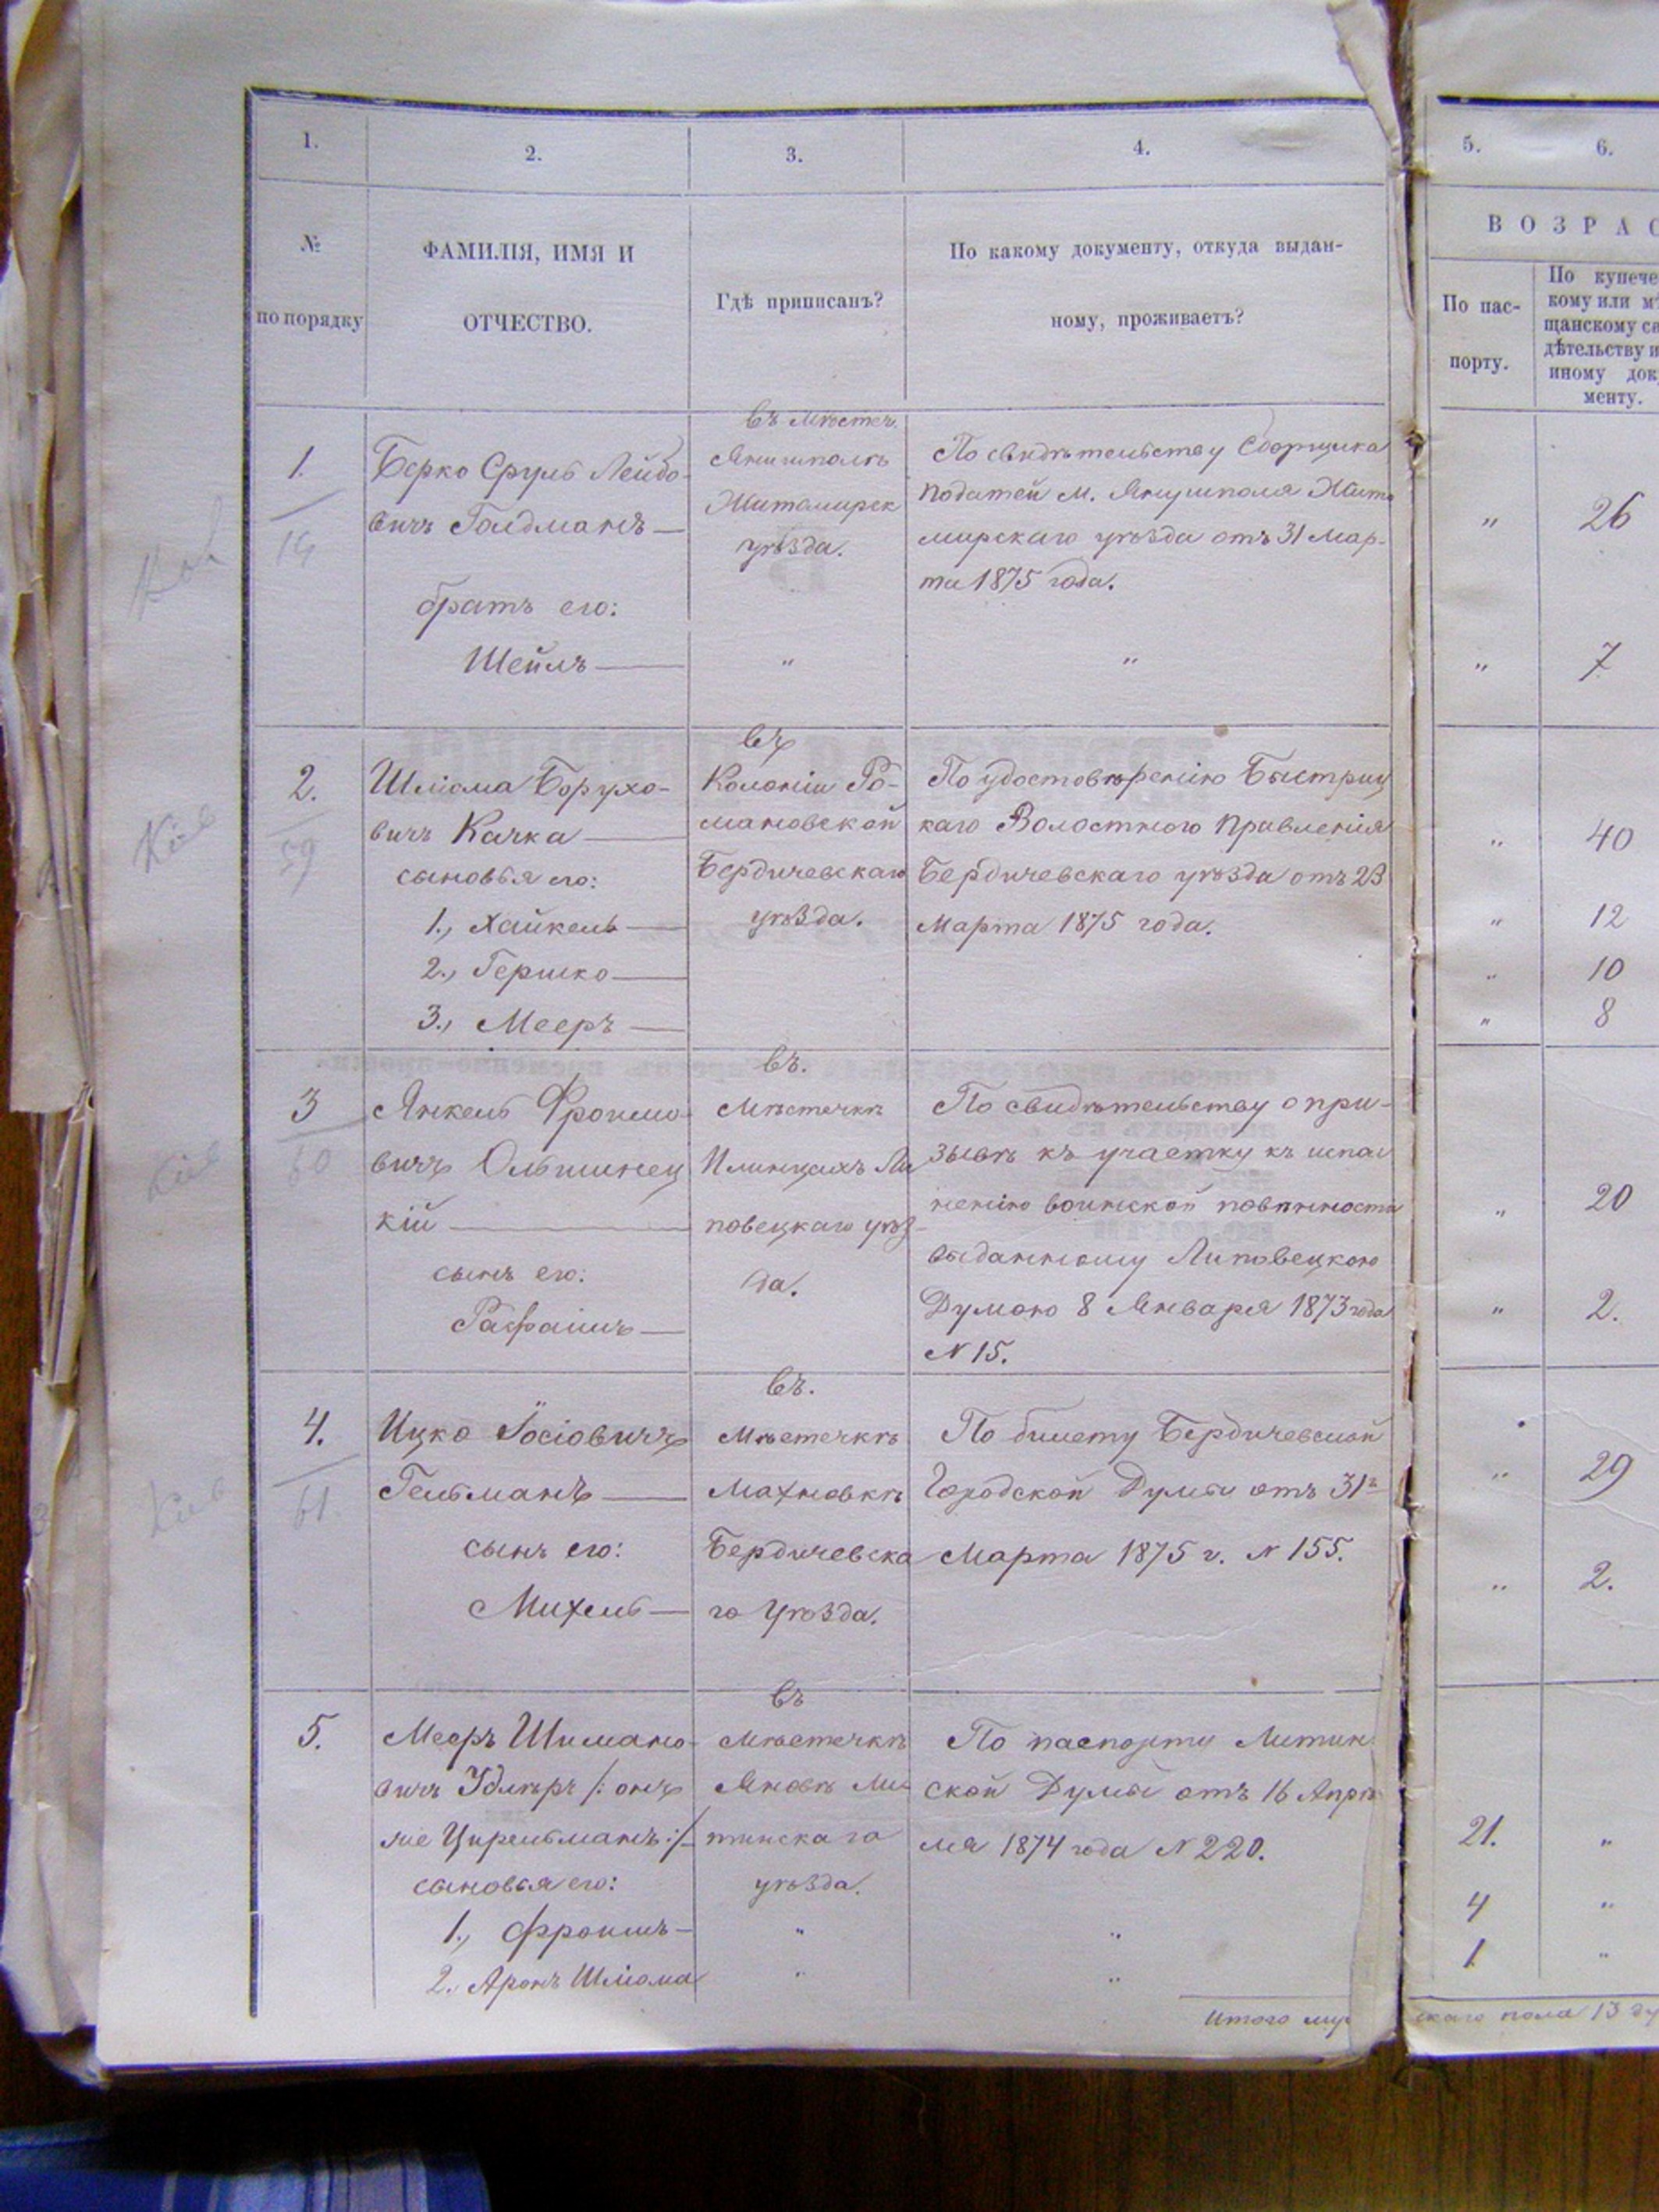 1. 2. 3. 4. 5. 6.
№ по порядку
ФАМИЛІЯ, ИМЯ И
ОТЧЕСТВО.
Гдѣ приписанъ?
По какому документу, откуда выдан-
ному, проживаетъ?
ВОЗРАС
По пас-
порту.
По купече
кому или мѣ
щанскому св
дѣтельству и
иному док
менту.
1.
Берко Сруль Лейбо-
вичъ Голдманъ —
братъ его:
Шейлъ —
въ Мѣстеч.
Янушполѣ
Житомирск
уѣзда.
"
По свидѣтельству Сборщика
податей м. Янушполя Жито
мирскаго уѣзда отъ 31 Мар-
та 1875 года.
"
" 26
" 7
2.
59
Шліома Борухо-
вичъ Качка —
сыновья его:
1., Хайкель —
2., Гершко —
3., Мееръ —
въ
Колоніи Ро-
мановской
Бердичевскаго
уѣзда.
По удостовѣренію Быстриц
каго Волостного Правленія
Бердичевскаго уѣзда отъ 23
Марта 1875 года.
" 40
" 12
" 10
" 8
3
60
Янкель Фроимо-
вичъ Ольшинец
кій —
сынъ его:
Рафаилъ —
въ.
Мѣстечкѣ
Илинцахъ Ли
повецкаго уѣз-
да.
По свидѣтельству о при-
зывѣ къ участку къ испол
ненію воинской повинности
выданному Липовецкою
Думою 8 Января 1873 года
N 15.
" 20
" 2.
4.
61
Ицко Іосіовичъ
Гельманъ —
сынъ его:
Михель —
въ.
Мѣстечкѣ
Махновкѣ
Бердичевска
го Уѣзда.
По билету Бердичевской
Городской Думы отъ 31г
Марта 1875 г. N 155.
" 29
" 2.
5.
Мееръ Шимано-
вичъ /: онъ
же Цирельманъ :/
сыновья его:
1., Фроимъ —
2., Аронъ Шліома
въ
Мѣстечкѣ
Яновѣ Ли
тинскаго
уѣзда.
"
"
По паспорту Литин
ской Думы отъ 16 Апрѣ
ля 1874 года N 220.
"
"
21. "
4 "
1 "
Итого му
скаго пола 13 ду